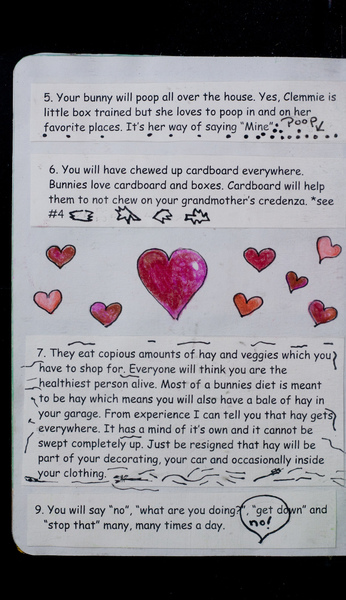 5. Your bunny will poop all over the house. Yes, Clemmie is
little box trained but she loves to poop in and on her
favorite places. It's her way of saying "Mine". Poop
6. You will have chewed up cardboard everywhere.
Bunnies love cardboard and boxes. Cardboard will help
them to not chew on your grandmother's credenza. *see
#4
7. They eat copious amounts of hay and veggies which you
have to shop for. Everyone will think you are the
healthiest person alive. Most of a bunnies diet is meant
to be hay which means you will also have a bale of hay in
your garage. From experience I can tell you that hay gets
everywhere. It has a mind of it's own and it cannot be
swept completely up. Just be resigned that hay will be
part of your decorating, your car and occasionally inside
your clothing.
9. You will say "no", "what are you doing?", "get down" and
"stop that" many, many times a day.
no!